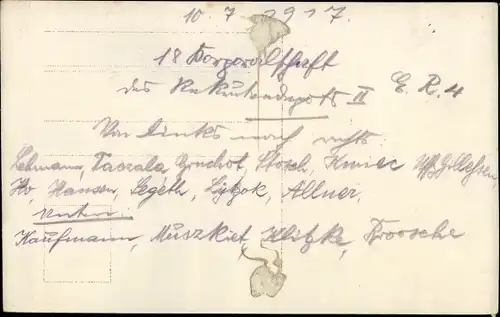 10. 7. 1917.
18 Korporalschaft
des Rekrutendepots II E. R. 4
Von links nach rechts.
Lehmann, Taczala, Bruchot, Stosch, Kmiec Uffz
Ko, Hansen, Segeth, Lytzok, Allner,
Unten:
Kaufmann, Muszkiet, Ulitzke, Kroosche